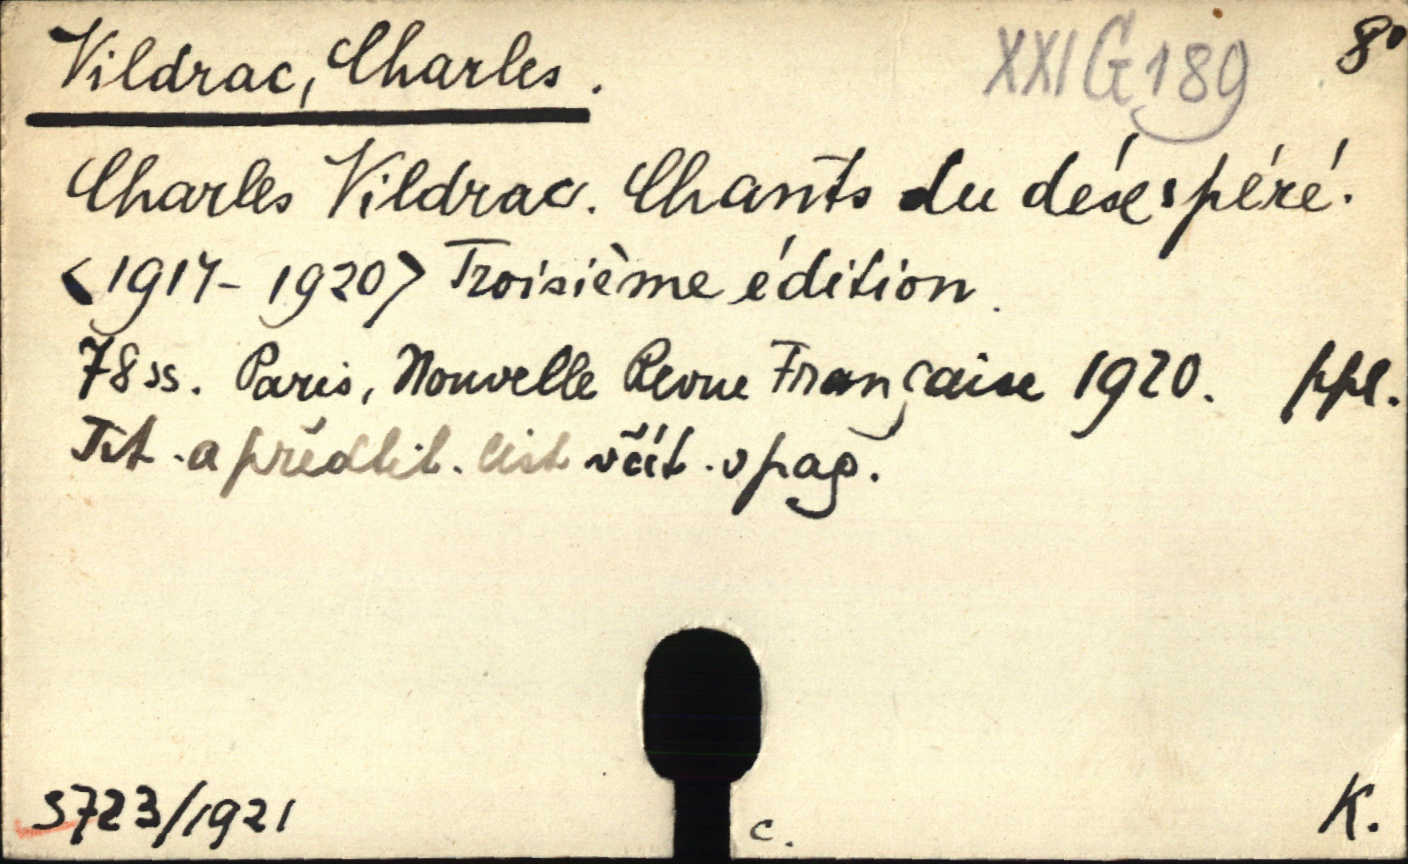 Vildrac, Charles. XXI G 189 8°
Charles Vildrac. Chants du désespéré.
<1914-1920> Troisième édition.
78 ss. Paris, Nouvelle Revue Française 1920. ppl.
Tit. a předtit. list včít. v pag.
S723/1921 c. K.